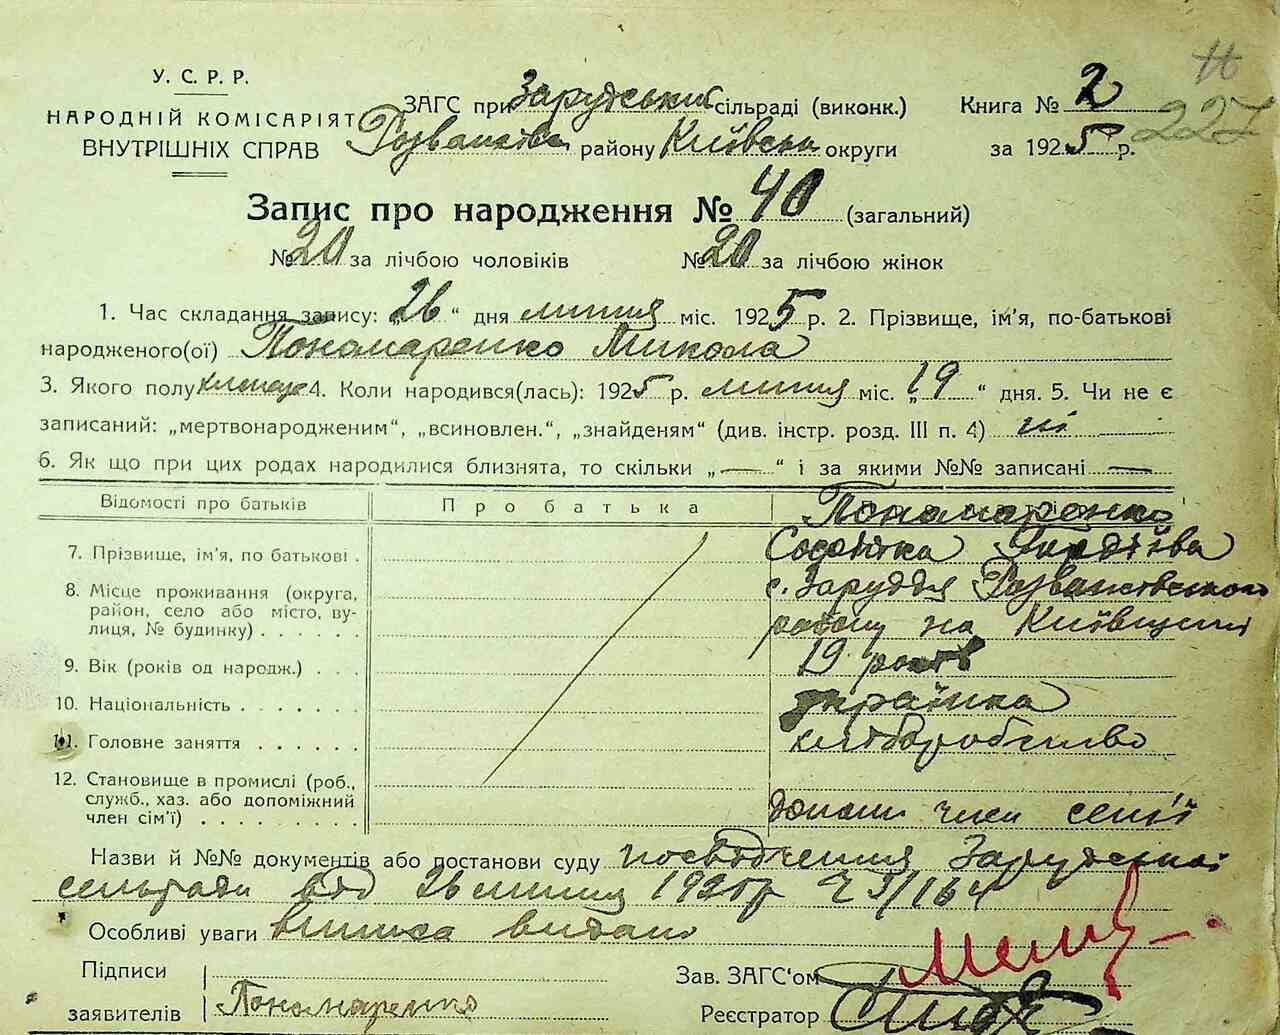 У. С. Р. Р.
НАРОДНІЙ КОМІСАРІЯТ
ВНУТРІШНІХ СПРАВ
ЗАГС при Зарудським сільраді (виконк.)
району Київськ округи
Книга № 2
за 1925 р.
227
Запис про народження № 40 (загальний)
№ 20 за лічбою чоловіків № 20 за лічбою жінок
1. Час складання запису: „26“ дня липня міс. 1925 р. 2. Прізвище, ім’я, по-батькові
народженого(ої) Пономаренко Микола
3. Якого полу 4. Коли народився(лась): 1925 р. липня міс. „19“ дня. 5. Чи не є
записаний: „мертвонародженим“, „всиновлен.“, „знайденям“ (див. інстр. розд. III п. 4) ні
6. Як що при цих родах народилися близнята, то скільки „—“ і за якими №№ записані —
Відомості про батьків Про батька
Пономаренко
7. Прізвище, ім’я, по батькові .
8. Місце проживання (округа, с. Заруддя
район, село або місто, ву-
лиця, № будинку) . . . . . . району на Київщині
9. Вік (років од народж.) . . . 19 років
10. Національність . . . . . . . українка
11. Головне заняття . . . . . . хліборобство
12. Становище в промислі (роб.,
служб., хаз. або допоміжний
член сім’ї) . . . . . . . . . допом член сем’ї
Назви й №№ документів або постанови суду посвідчення Зарудської
сельради від 26 липня 1925 р
Особливі уваги виписа видан
Підписи
заявителів Пономаренко
Зав. ЗАГС‘ом
Реєстратор